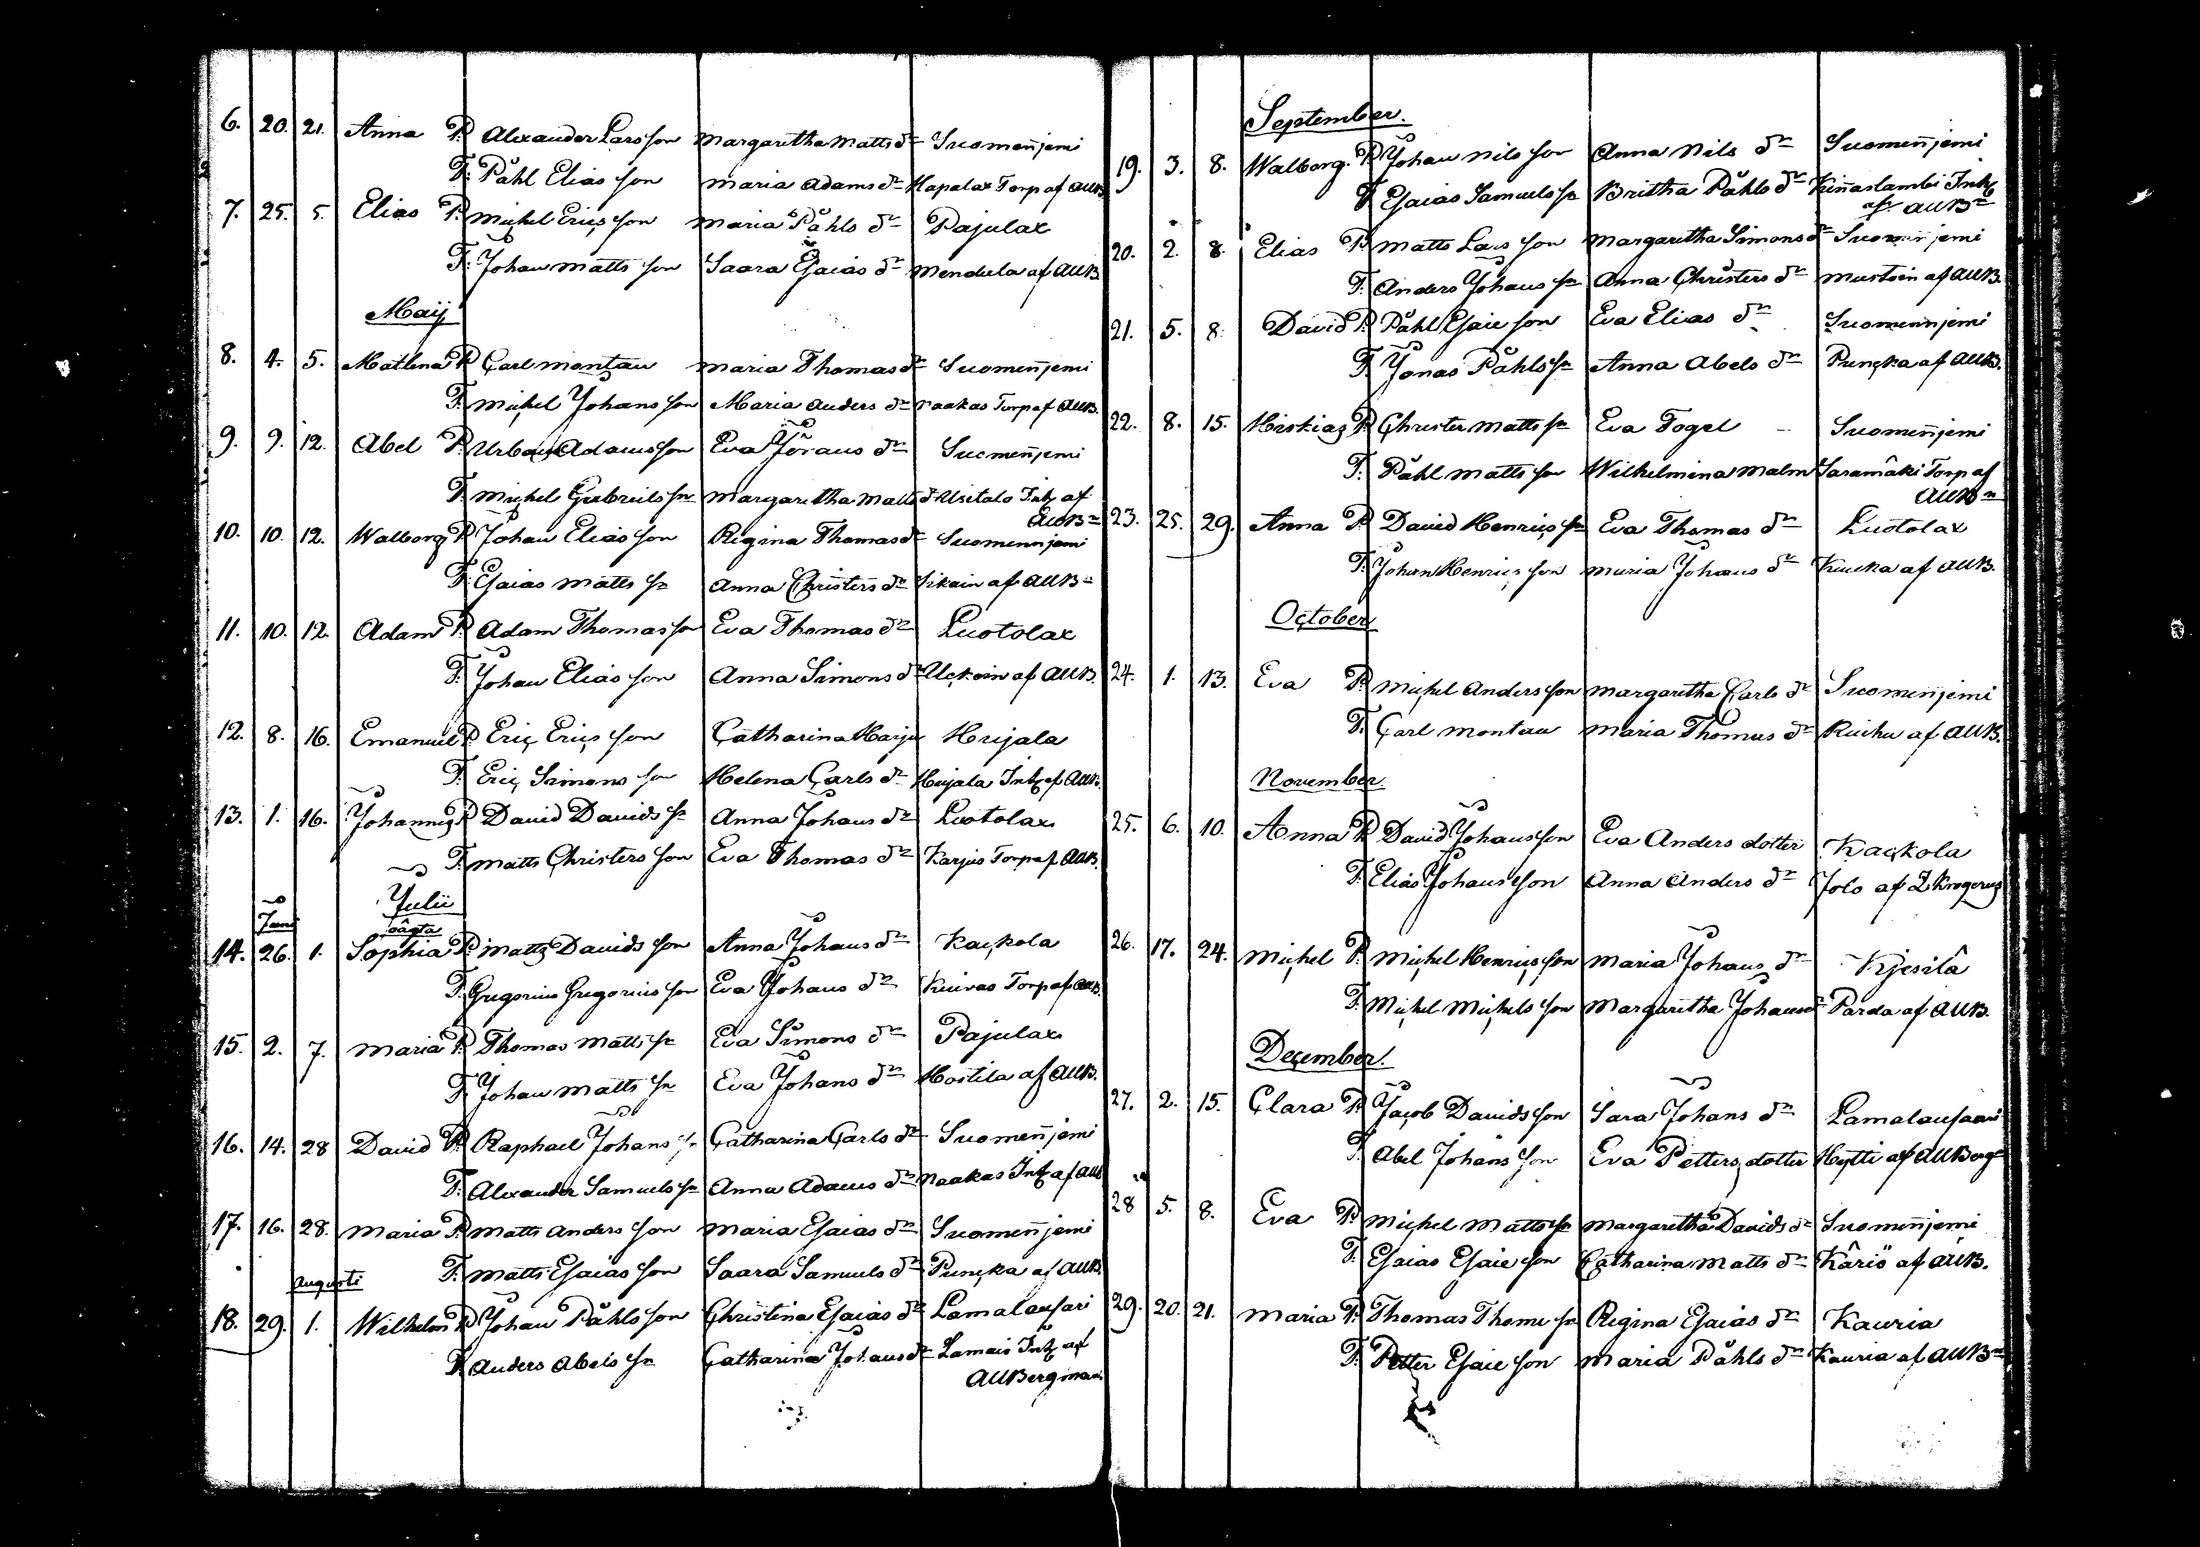 6. 20. 21. Anna P. Alexander Larsson Margaretha Matts dr Suomenjemi
F. Påhl Elias son Maria Adams dr Hapalax Torp af AUB
7. 25. 5. Elias P. Michel Erics son Maria Påhls dr Pajulax
F. Johan Matts son Saara Esaias dr Mendula af AUB
Maij
8. 4. 5. Mathena P. Carl Montan Maria Thomas dr Suomenjemi
F. Michel Johans son Maria Anders dr Torp af AUB.
9. 9. 12. Abel P. Urban Adamsson Eva Jörans dr Suomenjemi
F. Michel Gabriels sn Margaretha Matts d Usitalo Inh af
AUB
10. 10. 12. Walborg P. Johan Elias son Regina Thomas dr Suomennjemi
F. Esaias Matts sn Anna Christers dr Sikain af AUB
11. 10. 12. Adam P. Adam Thomas son Eva Thomas dr Luotolax
F. Johan Elias son Anna Simons dr Uckoin af AUB.
12. 8. 16. Emanuel P. Eric Erics son Catharina Harju Hujala
F. Eric Simons son Helena Carls dr Hujala Inh af AUB.
13. 1. 16. Johannes P. David Davids sn Anna Johans dr Luotolax
F. Matts Christers son Eva Thomas dr Karjus Torp af AUB.
Julii
Juni oägta
14. 26. 1. Sophia P. Matts Davids son Anna Johans dr Kackola
F. Gregorius Gregorius son Eva Johans dr Kuivas Torp af AUB.
15. 2. 7. Maria P. Thomas Matts sn Eva Simons dr Pajulax
F. Johan Matts sn Eva Johans dr Hostila af AUB.
16. 14. 28 David P. Raphael Johans sn Catharina Carls dr Suomenjemi
F. Alexander Samuels sn Anna Adams dr Naakas Inh af AUB
17. 16. 28. Maria P. Matts Anders son Maria Esaias dr Suomenjemi
F. Matts Esaias son Saara Samuels dr Puncka af AUB.
Augusti
18. 29. 1. Wilhelm P. Johan Påhls son Christina Esaias dr Lamalansari
F. Anders Abels sn Catharina Johans dr Lamais Inh af
AUBergman.
September.
19. 3. 8. Walborg. P. Johan Nils son Anna Nils dr Suomenjemi
F. Esaias Samuels sn Britha Påhls dr Kinaslambi Inh
af AUB
20. 2. 8. Elias P. Matts Lars son Margaretha Simons dr Suomenjemi
F. Anders Johans sn Anna Christers dr Mustoin af AUB.
21. 5. 8. David P. Påhl Esaie son Eva Elias dr Suomennjemi
F. Jonas Påhls sn Anna Abels dr Puncka af AUB.
22. 8. 15. Hiskias P. Christer Matts sn Eva Fogel - Suomenjemi
F. Påhl Matts son Wilhelmina Malm Saramäki Torp af
AUB
23. 25. 29. Anna P. David Henrics sn Eva Thomas dr Luotolax
F. Johan Henrics son Maria Johans dr Kucka af AUB.
October
24. 1. 13. Eva P. Michel Anders son Margaretha Carls dr Suomenjemi
F. Carl Montan Maria Thomas dr Ruihu af AUB.
November.
25. 6. 10. Anna P. David Johans son Eva Anders dotter Kackola
F. Elias Johans son Anna Anders dr Jolo af Z. Krogerus
26. 17. 24. Michel P. Michel Henrics son Maria Johans dr Kjesilä
F. Michel Michels son Margaretha Johans dr Parda af AUB.
December.
27. 2. 15. Clara P. Jacob Davids son Sara Johans dr Lamalansaari
F. Abel Johans son Eva Petters dotter Hytti af AUBergn
28 5. 8. Eva P. Michel Matts sn Margaretha Davids dr Suomenjemi
F. Esaias Esaie son Catharina Matts dr Käriö af AUB.
29. 20. 21. Maria P. Thomas Thome sn Regina Esaias dr Kauria
F. Petter Esaie son Maria Påhls dr Kauria af AUB